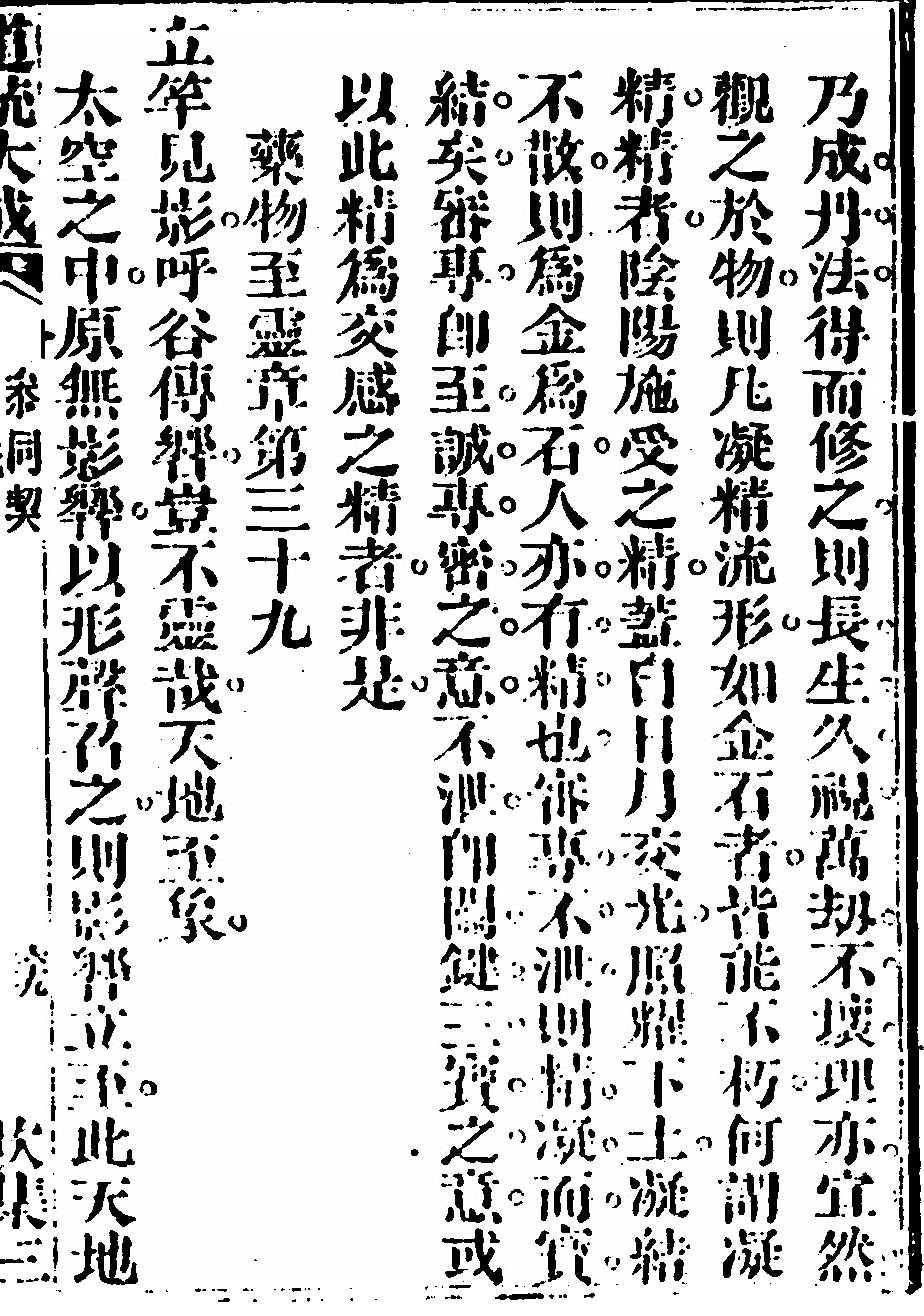 乃成丹法得而修之則長生久視萬劫不壞理亦宜然
觀之於物則凡凝精流形如金石者皆能不朽何謂凝
精精者陰陽施受之精葢自日月交光照耀下土凝結
不散則爲金爲石人亦有精也審專不泄則精凝而寶
結矣審專卽至誠專密之意不泄卽關鍵三寳之意或
以此精爲交感之精者非是
藥物至靈章第三十九
立竿見影呼谷傳響豈不靈哉天地至象
太空之中原無影響以形聲召之則影響立至此天地
道統大成
參同契
坎集三